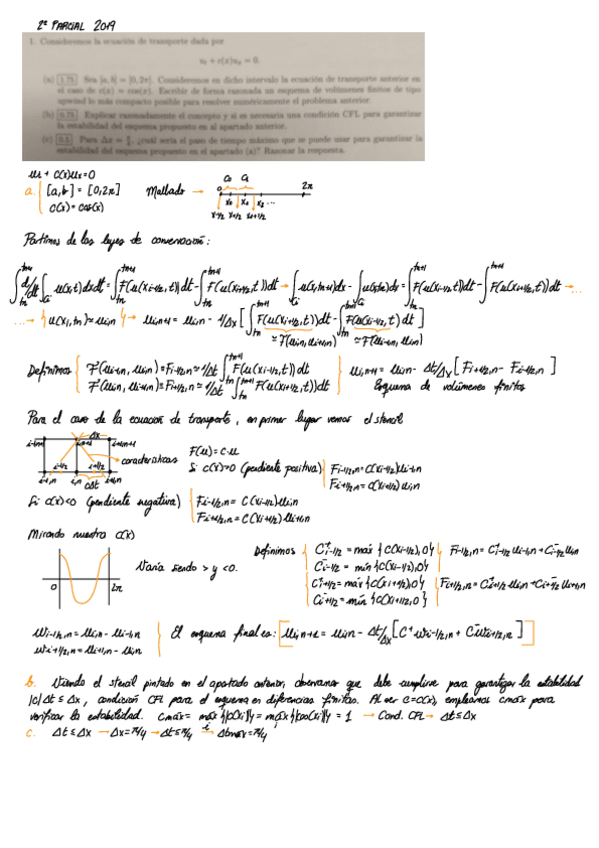 2º PARCIAL 2019
1. Consideremos la ecuación de transporte dada por
u_t + c(x)u_x = 0.
(a) [1.75] Sea [a, b] = [0, 2π]. Consideremos en dicho intervalo la ecuación de transporte anterior en
el caso de c(x) = cos(x). Escribir de forma razonada un esquema de volúmenes finitos de tipo
upwind lo más compacto posible para resolver numéricamente el problema anterior.
(b) [0.75] Explicar razonadamente el concepto y si es necesaria una condición CFL para garantizar
la estabilidad del esquema propuesto en al apartado anterior.
(c) [0.5] Para Δx = π/4, ¿cuál sería el paso de tiempo máximo que se puede usar para garantizar la
estabilidad del esquema propuesto en el apartado (a)? Razonar la respuesta.
ut + c(x)ux = 0
a. [a,b] = [0,2π] Mallado → 0 2π
c(x) = cos(x)
x-1/2 x1/2 xi+1/2
Partimos de las leyes de conservación:
∫tn^tn+1 d/dt ∫Ci u(x,t)dxdt = ∫tn^tn+1 F(u(xi-1/2,t))dt - ∫tn^tn+1 F(u(xi+1/2,t))dt → ∫Ci u(x,tn+1)dx - ∫Ci u(x,tn)dx = ∫tn^tn+1 F(u(xi-1/2,t))dt - ∫tn^tn+1 F(u(xi+1/2,t))dt → ...
... → { u(xi,tn) ≈ ui,n } → ui,n+1 = ui,n - 1/Δx [ ∫tn^tn+1 F(u(xi+1/2,t))dt - ∫tn^tn+1 F(u(xi-1/2,t))dt ]
≈ F(ui,n, ui+1,n) ≈ F(ui-1,n, ui,n)
Definimos { F(ui-1,n, ui,n) = Fi-1/2,n ≈ 1/Δt ∫tn^tn+1 F(u(xi-1/2,t))dt
F(ui,n, ui+1,n) = Fi+1/2,n ≈ 1/Δt ∫tn^tn+1 F(u(xi+1/2,t))dt
ui,n+1 = ui,n - Δt/Δx [ Fi+1/2,n - Fi-1/2,n ]
Esquema de volúmenes finitos
Para el caso de la ecuación de transporte, en primer lugar vemos el stencil
Δx
i-1,n+1 i,n+1 i+1,n+1
i-1/2 i+1/2 → características
i-1,n i,n i+1,n
Δt
F(u) = c·u
Si c(x)>0 (pendiente positiva) { Fi-1/2,n = c(xi-1/2)ui-1,n
Fi+1/2,n = c(xi+1/2)ui,n
Si c(x)<0 (pendiente negativa) { Fi-1/2,n = c(xi-1/2)ui,n
Fi+1/2,n = c(xi+1/2)ui+1,n
Mirando nuestra c(x)
0 2π
Varía siendo > y <0.
Definimos { C+i-1/2 = máx{c(xi-1/2),0}
C-i-1/2 = mín{c(xi-1/2),0}
Fi-1/2,n = C+i-1/2 ui-1,n + C-i-1/2 ui,n
C+i+1/2 = máx{c(xi+1/2),0}
C-i+1/2 = mín{c(xi+1/2),0}
Fi+1/2,n = C+i+1/2 ui,n + C-i+1/2 ui+1,n
wi-1/2,n = ui,n - ui-1,n
wi+1/2,n = ui+1,n - ui,n
El esquema final es: [ ui,n+1 = ui,n - Δt/Δx [ C+ wi-1/2,n + C- wi+1/2,n ] ]
b. Viendo el stencil pintado en el apartado anterior, observamos que debe cumplirse para garantizar la estabilidad
|c|Δt ≤ Δx, condición CFL para el esquema en diferencias finitas. Al ser c=c(x), empleamos cmáx para
verificar la estabilidad. cmáx = máx{|c(xi)|} = máx{|cos(xi)|} = 1 → Cond. CFL → Δt ≤ Δx
c. Δt ≤ Δx → Δx = π/4 → Δt ≤ π/4 → Δtmáx = π/4